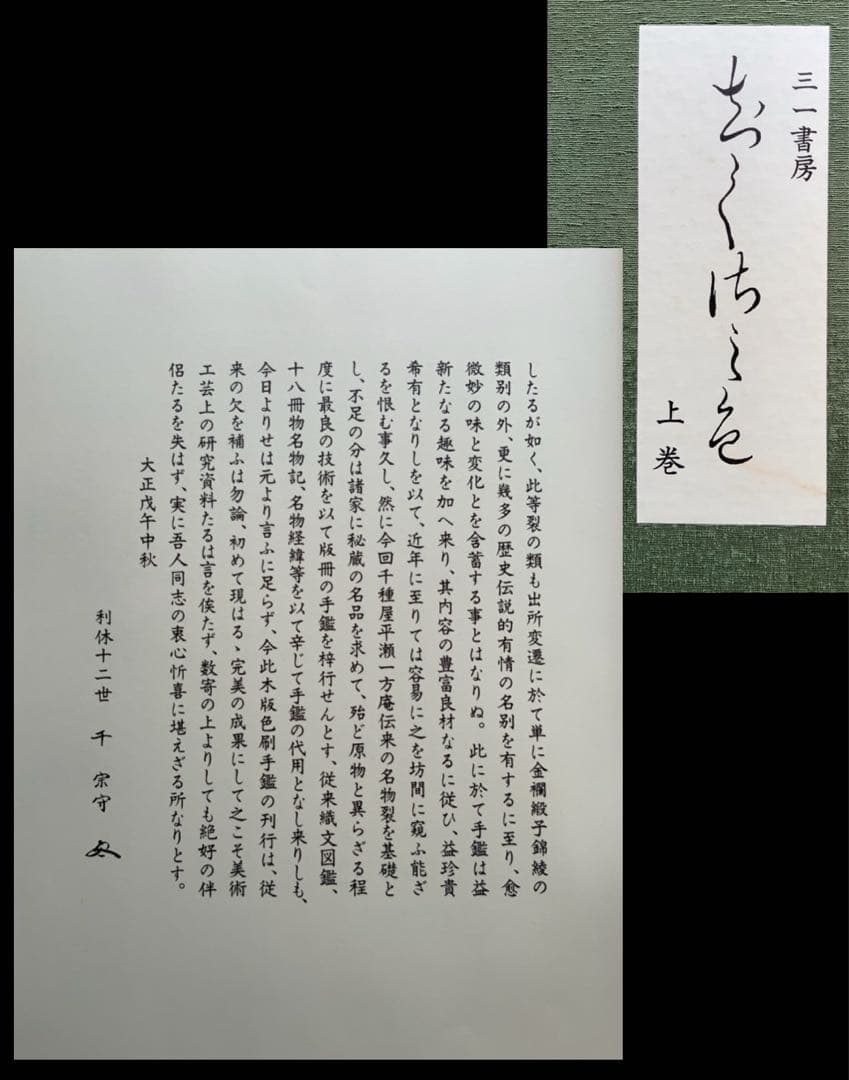 三一書房
上巻
したるが如く、此等裂の類も出所変遷に於て単に金襴緞子錦綾の
類別の外、更に幾多の歴史伝説的有情の名別を有するに至り、愈
微妙の味と変化とを含蓄する事とはなりぬ。此に於て手鑑は益
新たなる趣味を加へ来り、其内容の豊富良材なるに従ひ、益珍貴
希有となりしを以て、近年に至りては容易に之を坊間に窺ふ能ざ
るを恨む事久し、然に今回千種屋平瀬一方庵伝来の名物裂を基礎と
し、不足の分は諸家に秘蔵の名品を求めて、殆ど原物と異らざる程
度に最良の技術を以て版冊の手鑑を梓行せんとす、従来織文図鑑、
十八冊物名物記、名物経緯等を以て辛じて手鑑の代用となし来りしも、
今日よりせは元より言ふに足らず、今此木版色刷手鑑の刊行は、従
来の欠を補ふは勿論、初めて現はるゝ完美の成果にして之こそ美術
工芸上の研究資料たるは言を俟たず、数寄の上よりしても絶好の伴
侶たるを失はず、実に吾人同志の衷心忻喜に堪えざる所なりとす。
大正戊午中秋
利休十二世 千 宗守